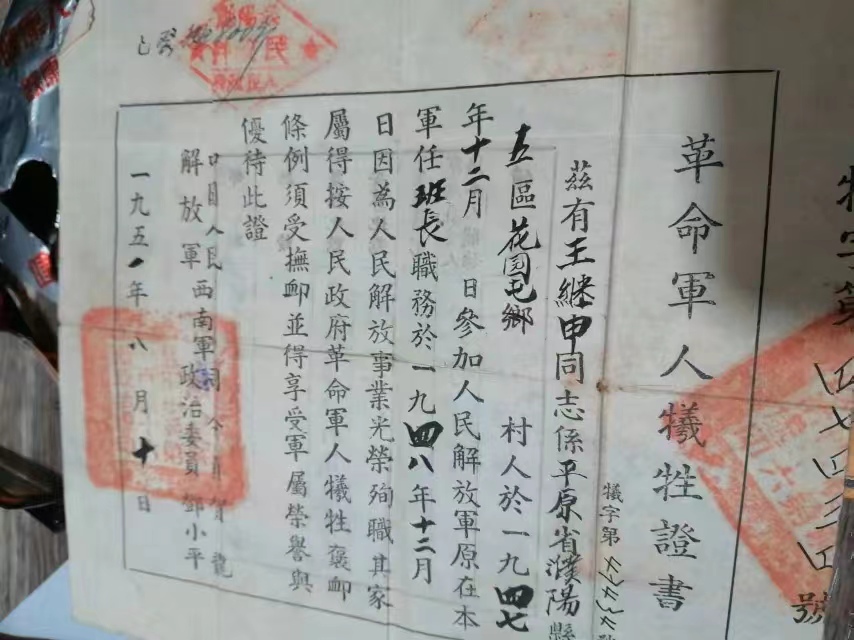 牺字第四七四三四號
革命軍人犧牲證書
犧字第
茲有王継申同志係平原省濮陽縣
五區花园屯鄉 村人於一九四七
年十二月 日參加人民解放軍原在本
軍任班長職務於一九四八年十二月
日因為人民解放事業光榮殉職其家
屬得按人民政府革命軍人犧牲褒卹
條例須受撫卹並得享受軍屬榮譽與
優待此證
人民 司令員賀龍
解放軍西南軍政治委員鄧小平
一九五一年八月十日
已發
民